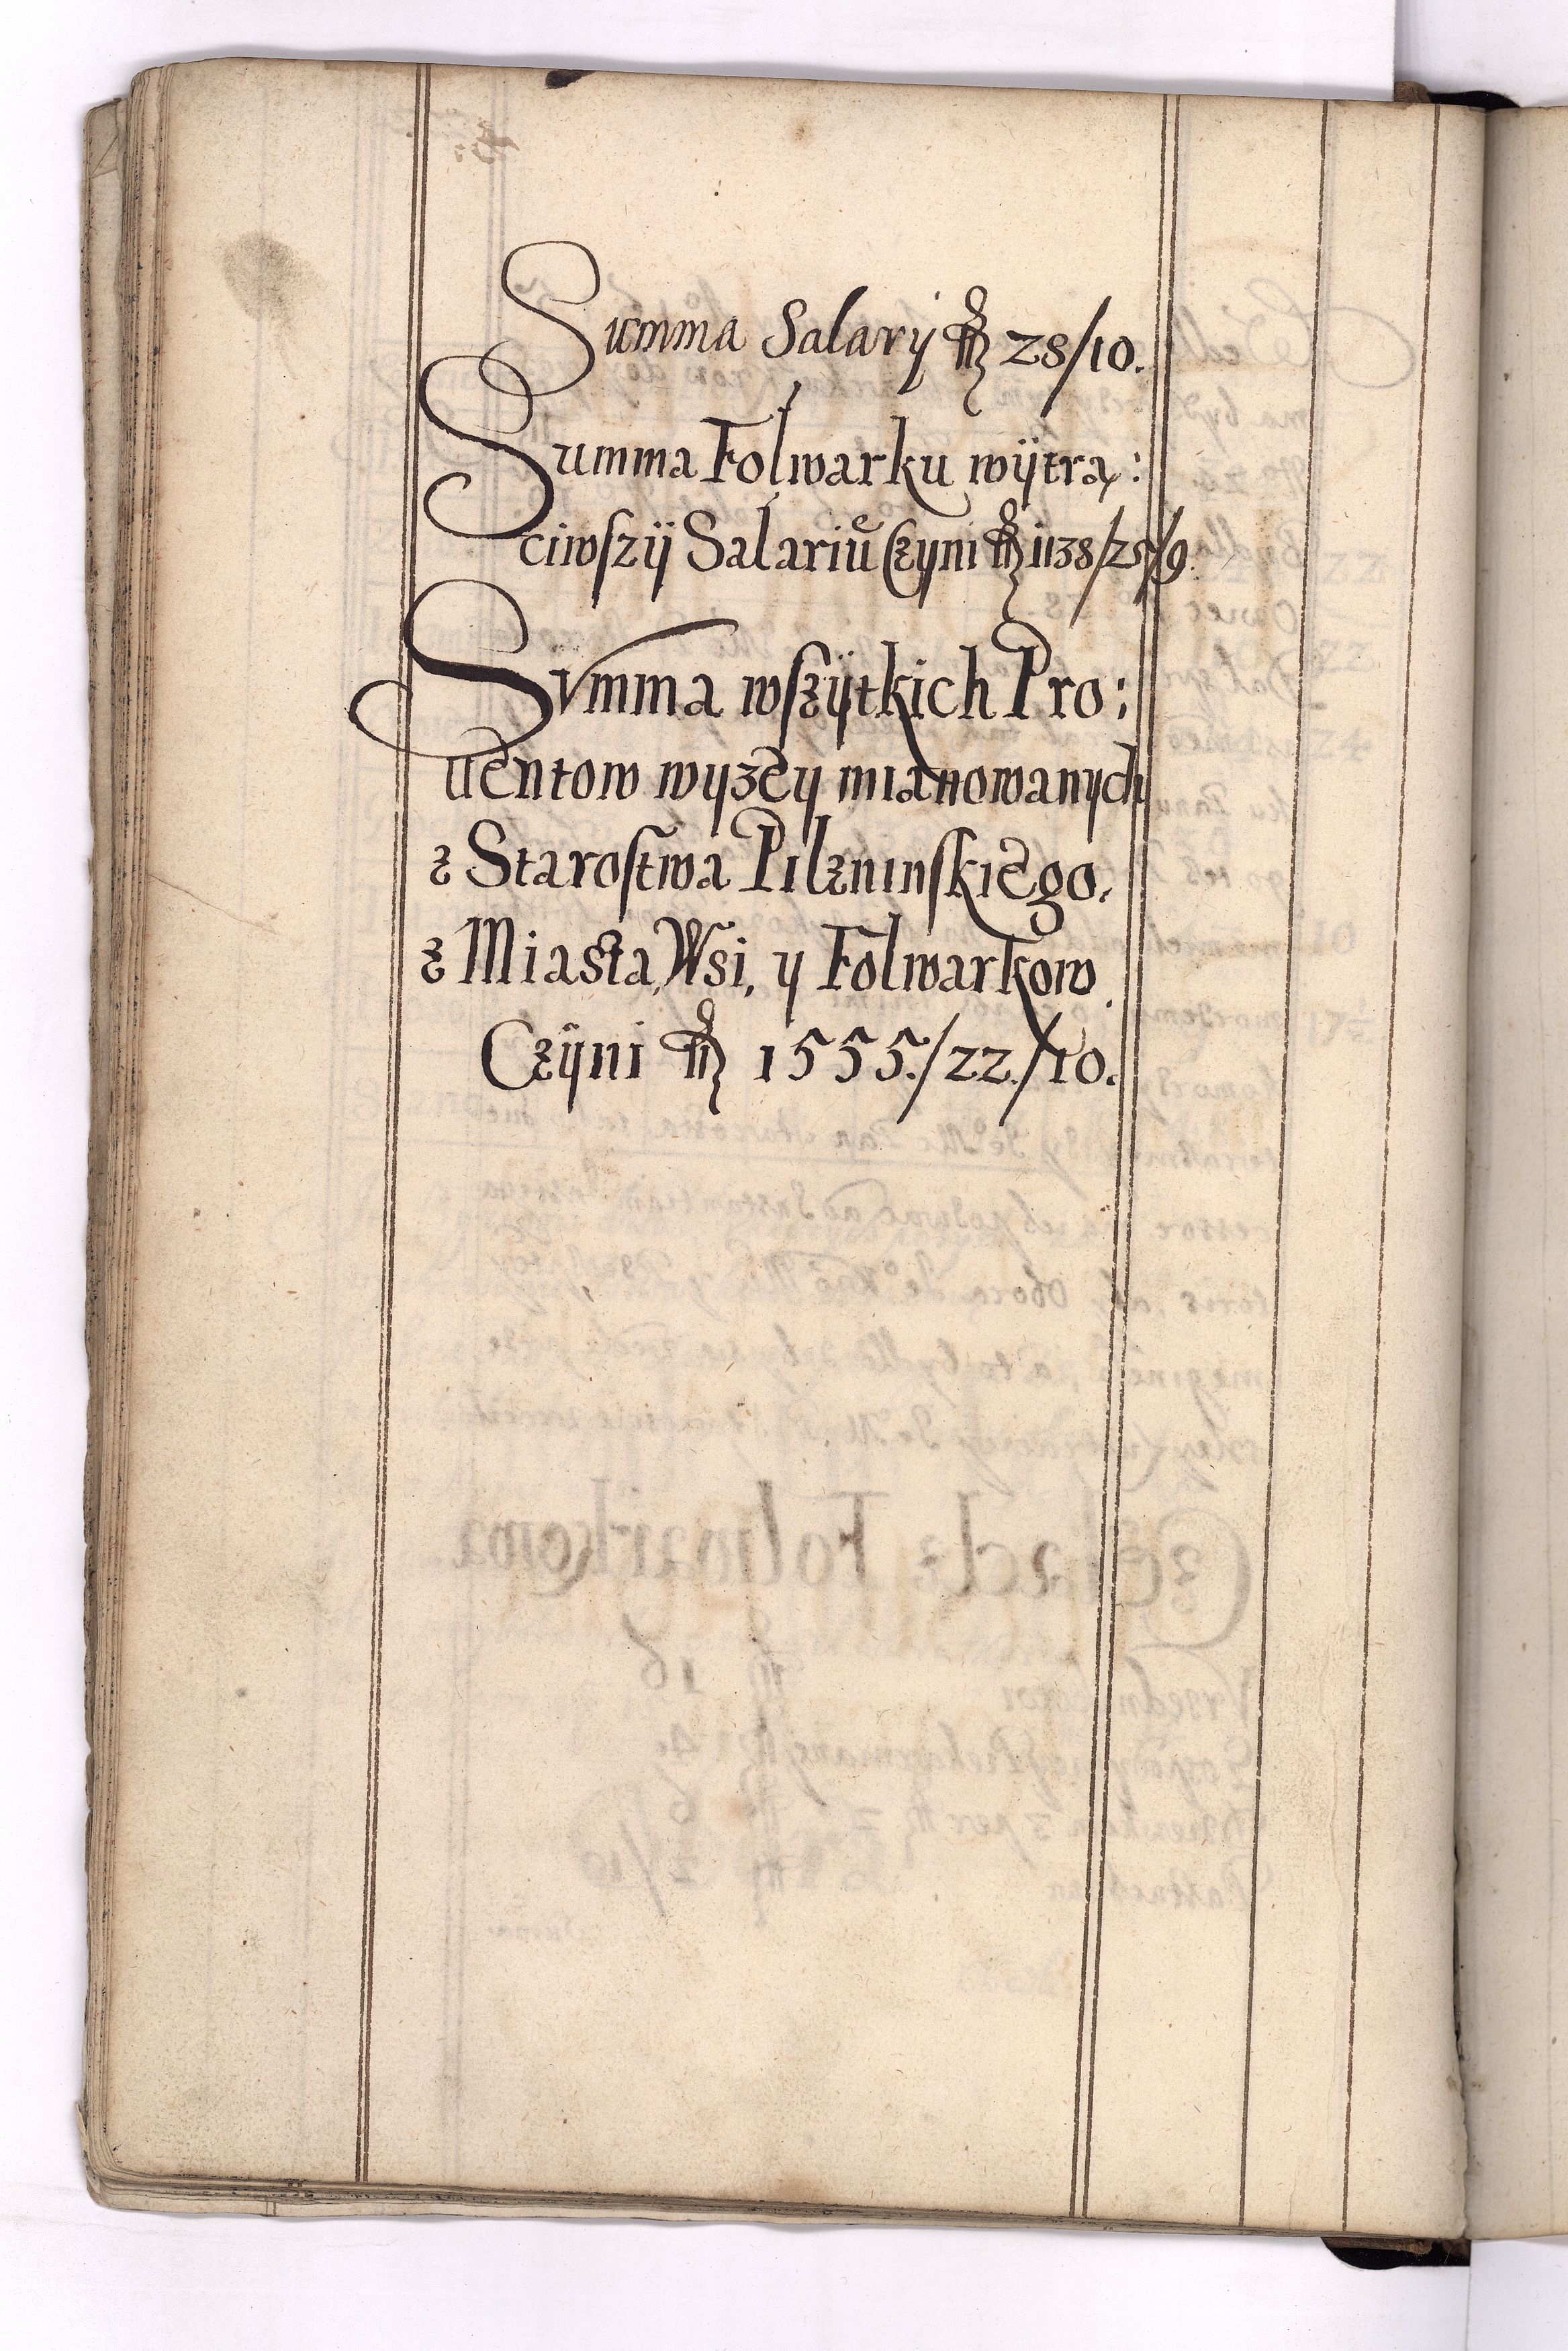 Summa Salarij fl 28/10.
Summa Folwarku wÿtrą:
ciwszÿ Salariū Czyni fl 1138/25/9.
Svmma wszÿtkich Pro:
uentow wyzey mianowanych
z Starostwa Pilzninskiego,
z Miasta, Wsi, y Folwarkow
Czÿni fl 1555./22./10.